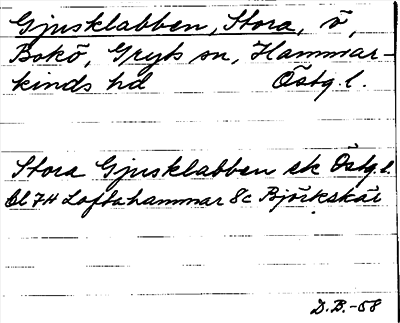 Gjusklabben, Stora, ö,
Bokö, Gryts sn, Hammar-
kinds hd Östg. l.
Stora Gjusklabben ek Östg. l.
bl 7H Loftahammar 8c Björkskär
D.B.-58